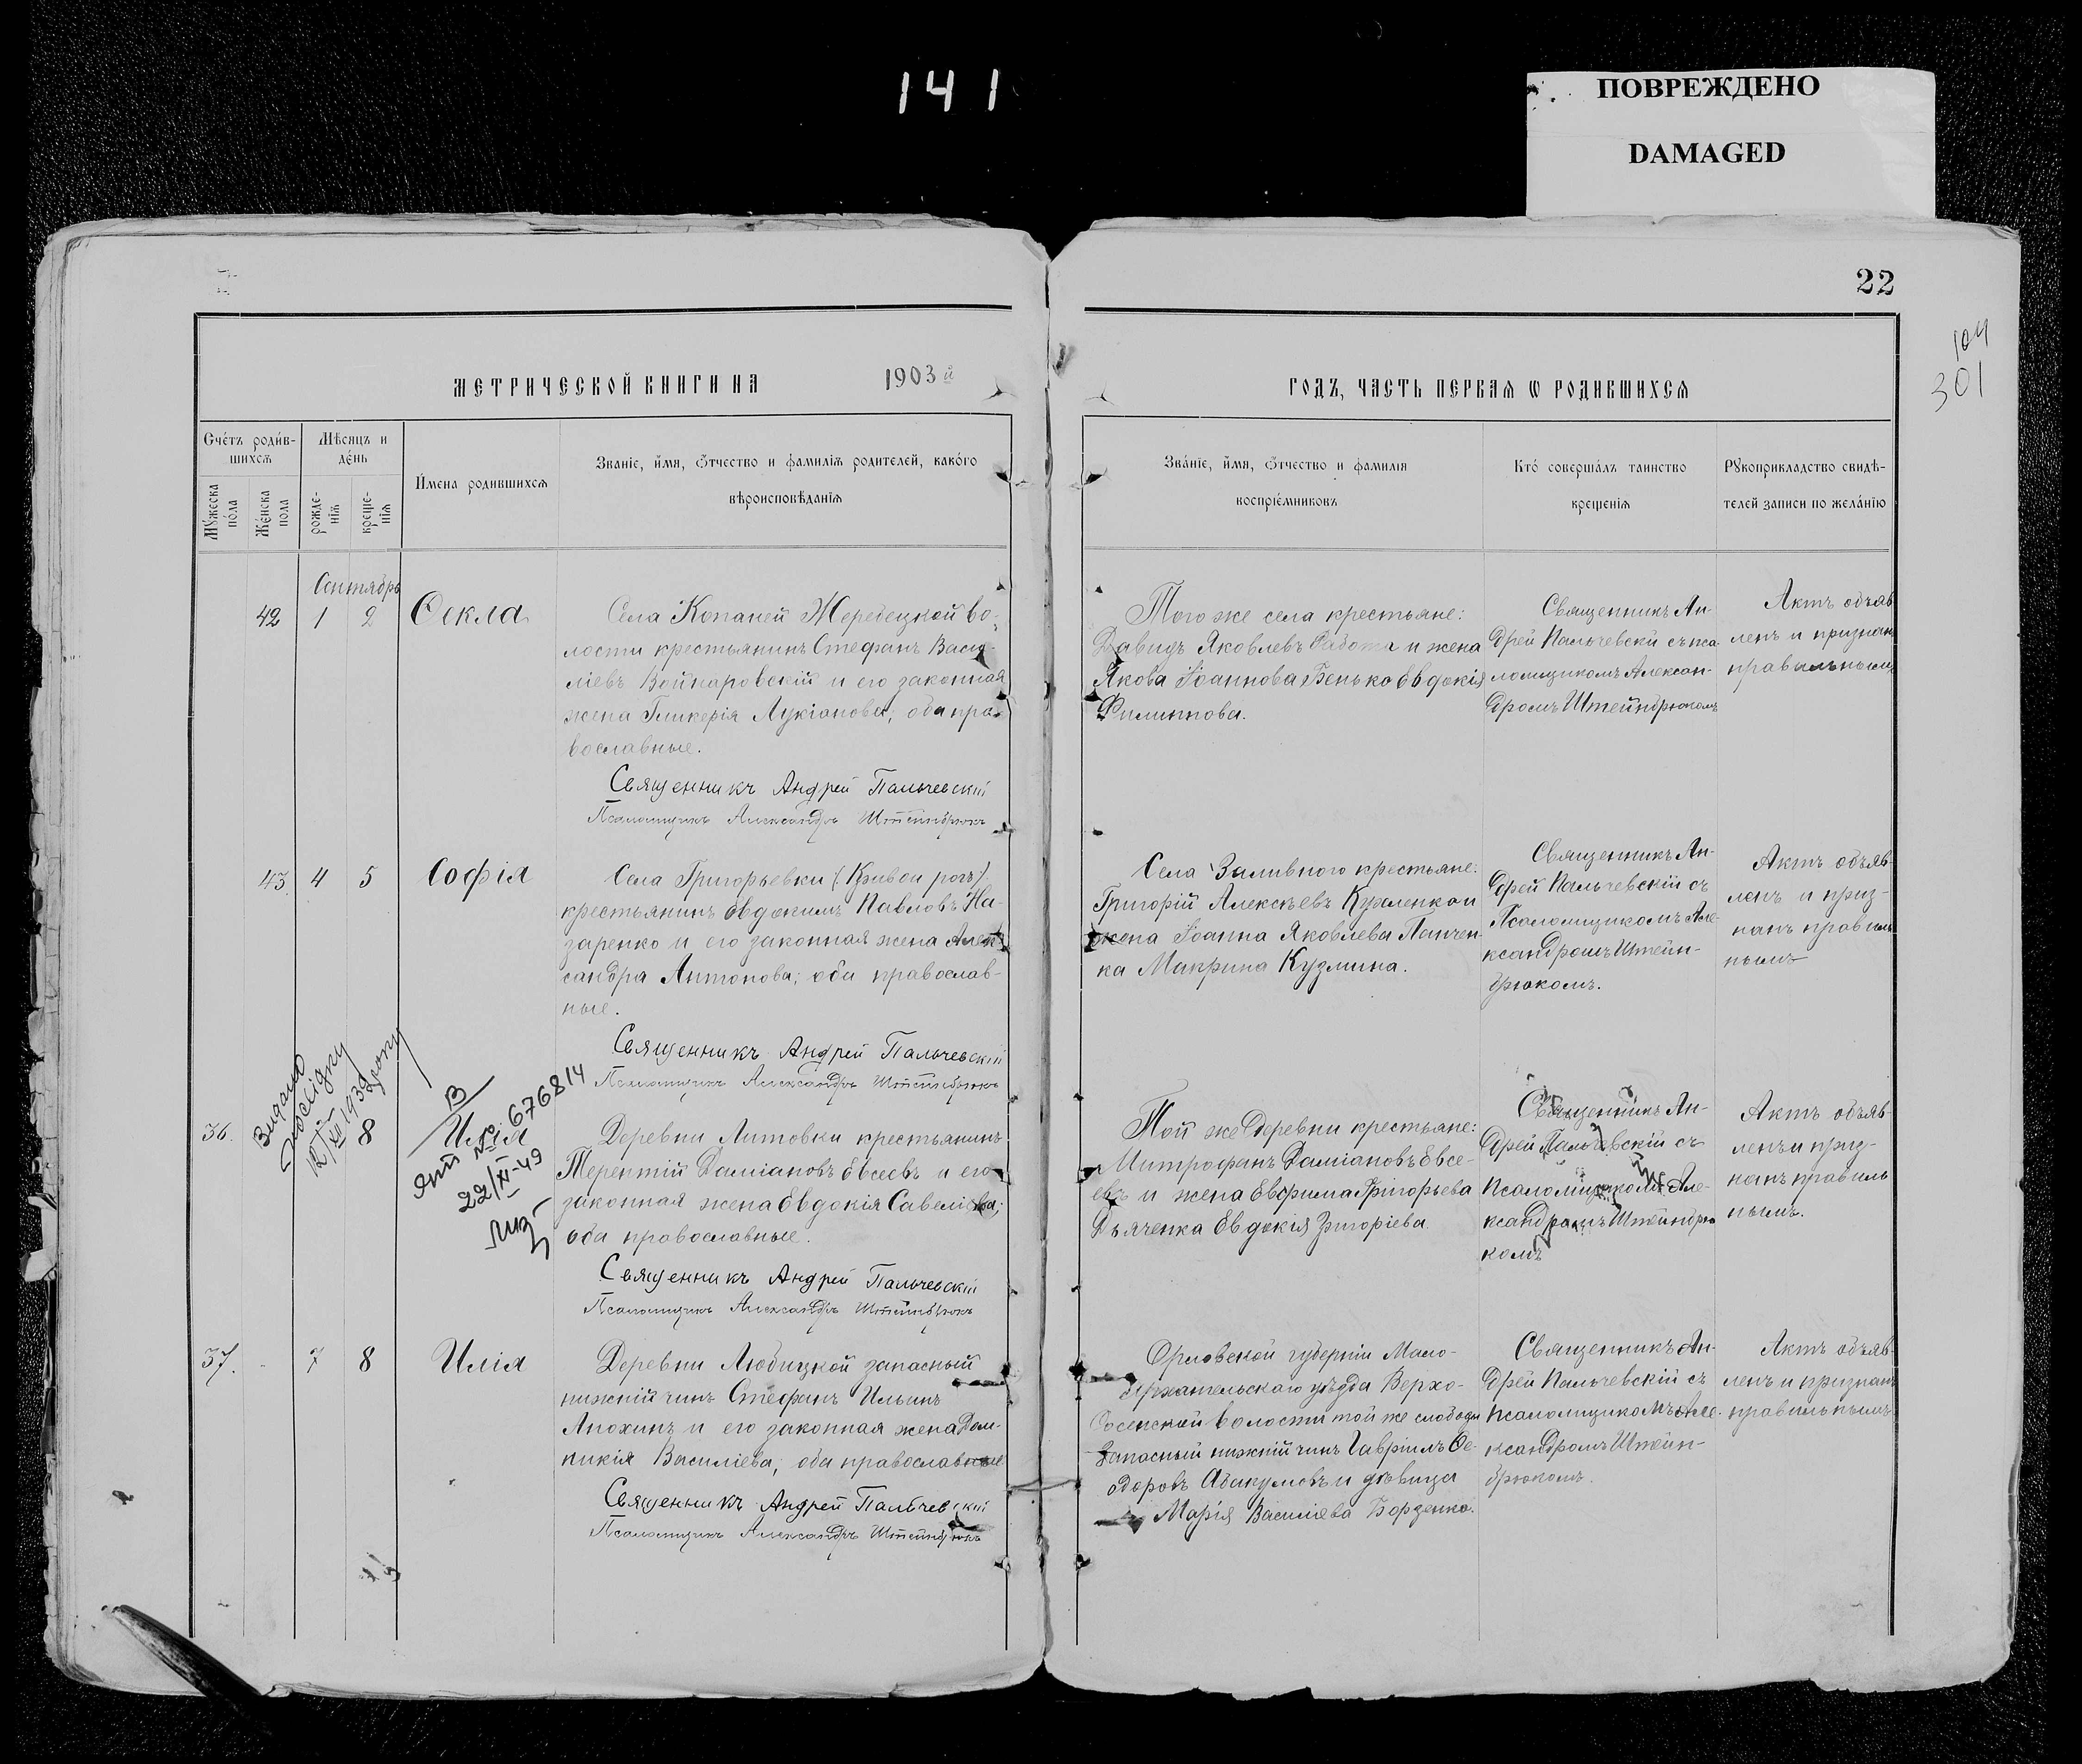 141
ПОВРЕЖДЕНО
DAMAGED
22
104
301
МЕТРИЧЕСКОЙ КНИГИ НА 1903й
ГОДЪ, ЧАСТЬ ПЕРВАЯ Ѡ РОДИВШИХСЯ
Счетъ родив-
шихся
Мужеска пола
Женска пола
Мѣсяцъ и
день
рожде-
нія
креще-
нія
Имена родившихся
Званіе, имя, ѿчество и фамилія родителей, какого
вѣроисповѣданія
Званіе, имя, ѿчество и фамилія
воспріемниковъ
Кто совершалъ таинство
крещенія
Рукоприкладство свидѣ-
телей записи по желанію
Сентябрь
42 1 2 Ѳекла
Села Копаней Жеребецкой во-
лости крестьянинъ Стефанъ Васи-
ліевъ Войнаровскій и его законная
жена Гликерія Лукіанова; оба пра-
вославные.
Священникъ Андрей Пальчевскій
Псаломщикъ Александръ Штейнбрюкъ
Того же села крестьяне:
Давидъ Яковлевъ и жена
Якова Іоаннова Бенько Евдокія
Филиппова.
Священникъ Ан-
дрей Пальчевскій съ пса
ломщикомъ Алексан-
дромъ Штейнбрюкомъ
Актъ объяв
ленъ и признанъ
правильнымъ
43. 4 5 Софія
Села Григорьевки (Кривой рогъ)
крестьянинъ Евдокимъ Павловъ На-
заренко и его законная жена Алек-
сандра Антонова; оба православ-
ные.
Священникъ Андрей Пальчевскій
Псаломщикъ Александръ Штейнбрюкъ
Села Заливного крестьяне:
Григорій Алексѣевъ и
жена Іоанна Яковлева Панчен-
ка Макрина Кузмина.
Священникъ Ан-
дрей Пальчевскій съ
Псаломщикомъ Але-
ксандромъ Штейн-
брюкомъ.
Актъ объяв-
ленъ и приз-
нанъ правиль
нымъ
36. 8 Илія
Видано
12/XII 1939 року
№ 676814
22/XI-49
Деревни Литовки крестьянинъ
Терентій Даміановъ Евсеевъ и его
законная жена Евдокія Савеліева;
оба православные.
Священникъ Андрей Пальчевскій
Псаломщикъ Александръ Штейнбрюкъ
Той же Деревни крестьяне:
Митрофанъ Даміановъ Евсе-
евъ и жена Евфима Григорьева
Дьяченка Евдокія Григоріева
Священникъ Ан-
дрей Пальчевскій съ
Псаломщикомъ Але-
ксандромъ Штейнбрю
комъ
Актъ объяв-
ленъ и приз-
нанъ правиль
нымъ.
37. 7 8 Илія
Деревни Любицкой запасный
нижній чинъ Стефанъ Ильинъ
Анохинъ и его законная жена Дом-
никія Василіева; оба православные
Священникъ Андрей Пальчевскій
Псаломщикъ Александръ Штейнбрюкъ
Орловской губерніи Мало-
архангельскаго уѣзда Верхо-
Сосенской волости той же слободы
запасный нижній чинъ Гавріилъ Ѳе-
одоровъ Абакумовъ и дѣвица
Марія Василіева Борзенко.
Священникъ Ан-
дрей Пальчевскій съ
псаломщикомъ Але-
ксандромъ Штейн-
брюкомъ.
Актъ объяв-
ленъ и признанъ
правильнымъ